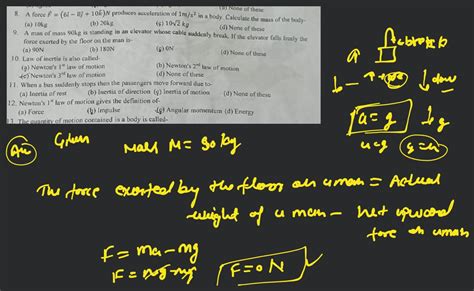 (b) None of these
8. A force F⃗ = (6î – 8ĵ + 10k̂)N produces acceleration of 1m/s² in a body. Calculate the mass of the body-
(a) 10kg (b) 20kg (c) 10√2 kg (d) None of these
9. A man of mass 90kg is standing in an elevator whose cable suddenly break. If the elevator falls freely the
force exerted by the floor on the man is-
(a) 90N (b) 180N (c) 0N (d) None of these
10. Law of inertia is also called-
(a) Newton's 1st law of motion (b) Newton's 2nd law of motion
(c) Newton's 3rd law of motion (d) None of these
11. When a bus suddenly stops than the passengers move forward due to-
(a) Inertia of rest (b) Inertia of direction (c) Inertia of motion (d) None of these
12. Newton's 1st law of motion gives the definition of-
(a) Force (b) Impulse (c) Angular momentum (d) Energy
13. The quantity of motion contained in a body is called-
down
a = g
g
Given
Mass M = 90 kg
The force exerted by the floor on a man = Actual
weight of a man – net upward
force on a man
F = ma – mg
F = mg – mg
F = 0 N